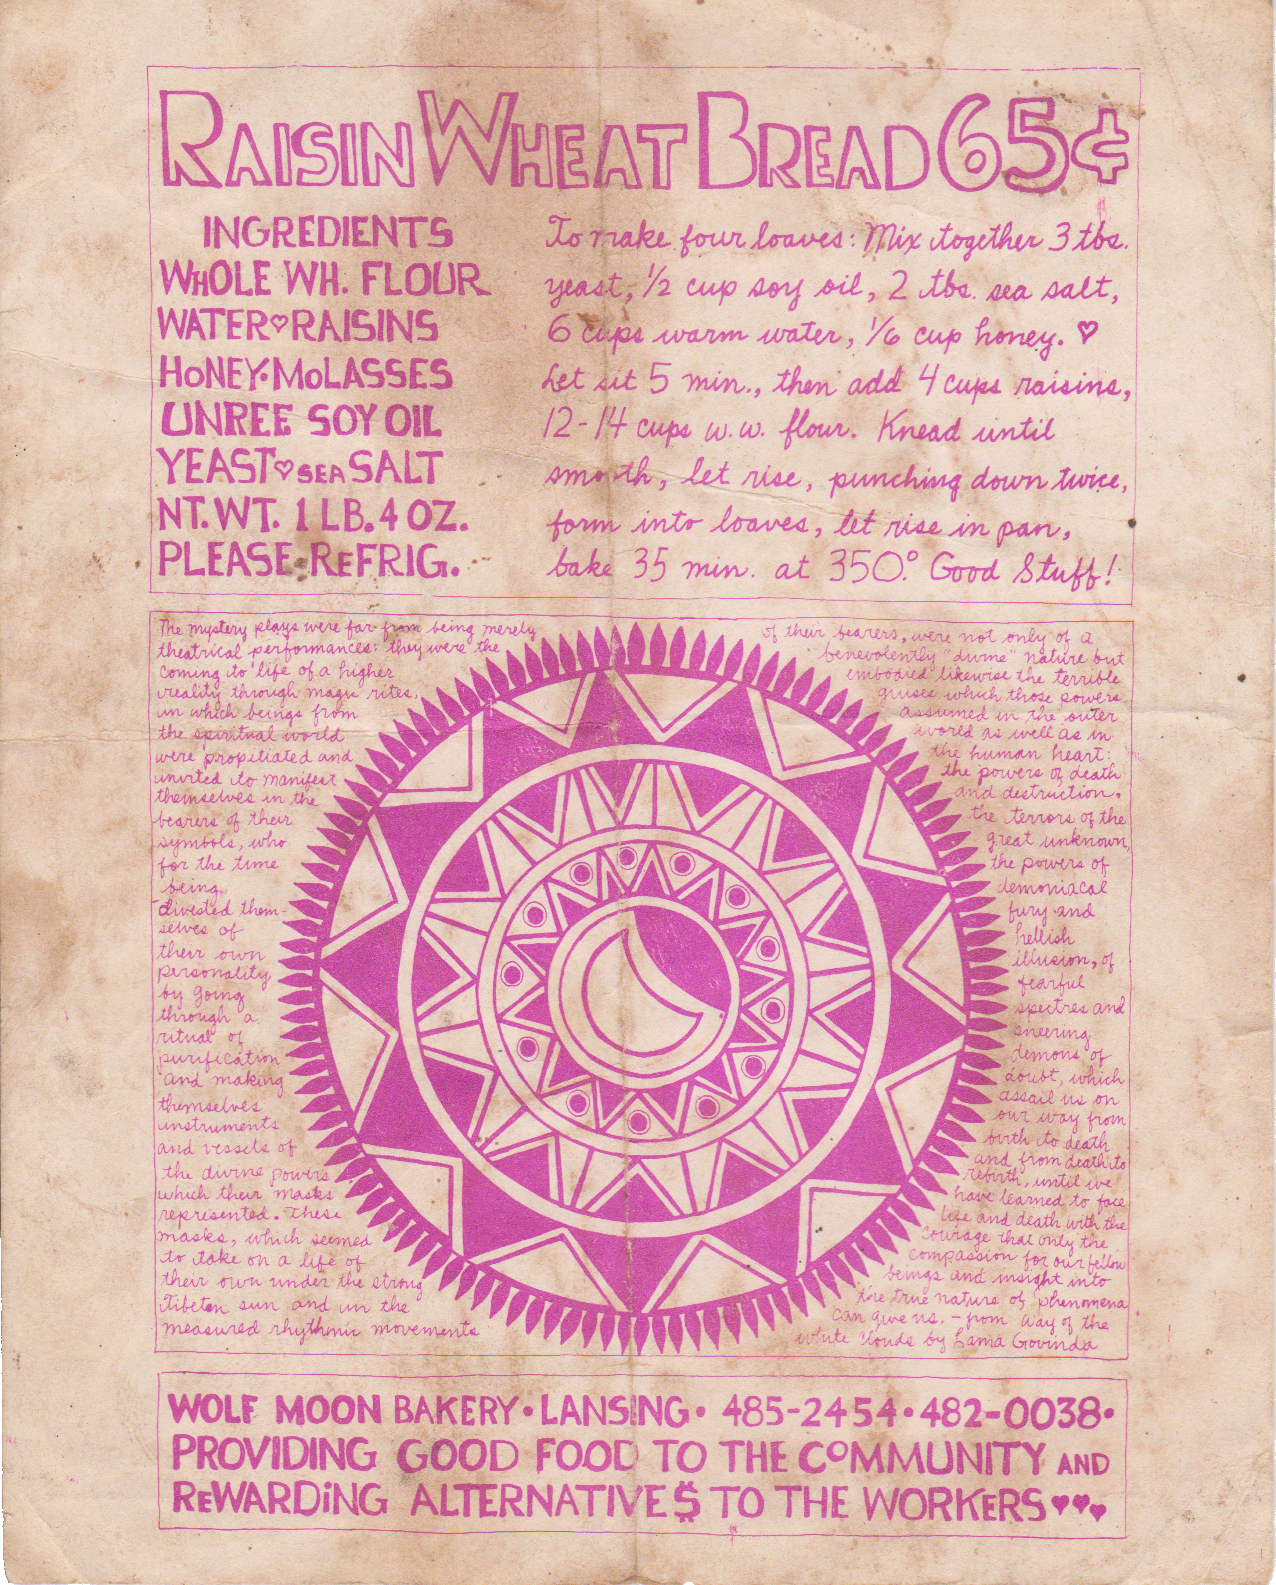 RAISIN WHEAT BREAD 65¢
INGREDIENTS
WHOLE WH. FLOUR
WATER♡RAISINS
HONEY·MOLASSES
UNREF SOY OIL
YEAST♡SEA SALT
NT. WT. 1 LB. 4 OZ.
PLEASE REFRIG.
To make four loaves: Mix together 3 tbs.
yeast, ½ cup soy oil, 2 tbs. sea salt,
6 cups warm water, 1/6 cup honey. ♡
Let sit 5 min., then add 4 cups raisins,
12-14 cups w.w. flour. Knead until
smooth, let rise, punching down twice,
form into loaves, let rise in pan,
bake 35 min. at 350°. Good Stuff!
The mystery plays were far from being merely
theatrical performances: they were the
coming to life of a higher
reality through magic rites,
in which beings from
the spiritual world
were propitiated and
invited to manifest
themselves in the
bearers of their
symbols, who
for the time
being
divested them-
selves of
their own
personality
by going
through a
ritual of
purification
and making
themselves
instruments
and vessels of
the divine powers
which their masks
represented. These
masks, which seemed
to take on a life of
their own under the strong
Tibetan sun and in the
measured rhythmic movements
of their bearers, were not only of a
benevolently "divine" nature but
embodied likewise the terrible
guises which those powers
assumed in the outer
world as well as in
the human heart:
the powers of death
and destruction,
the terrors of the
great unknown,
the powers of
demoniacal
fury and
hellish
illusion, of
fearful
spectres and
sneering
demons of
doubt, which
assail us on
our way from
birth to death
and from death to
rebirth, until we
have learned to face
life and death with the
courage that only the
compassion for our fellow
beings and insight into
the true nature of phenomena
can give us. - from Way of the
White Clouds by Lama Govinda
WOLF MOON BAKERY·LANSING· 485-2454·482-0038·
PROVIDING GOOD FOOD TO THE COMMUNITY AND
REWARDING ALTERNATIVE$ TO THE WORKERS♥♥♥